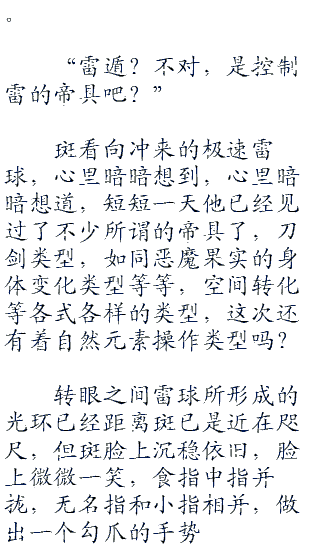 。
“雷遁？不对，是控制
雷的帝具吧？”
斑看向冲来的极速雷
球，心里暗暗想到，心里暗
暗想道，短短一天他已经见
过了不少所谓的帝具了，刀
剑类型，如同恶魔果实的身
体变化类型等等，空间转化
等各式各样的类型，这次还
有着自然元素操作类型吗？
转眼之间雷球所形成的
光环已经距离斑已是近在咫
尺，但斑脸上沉稳依旧，脸
上微微一笑，食指中指并
拢，无名指和小指相并，做
出一个勾爪的手势